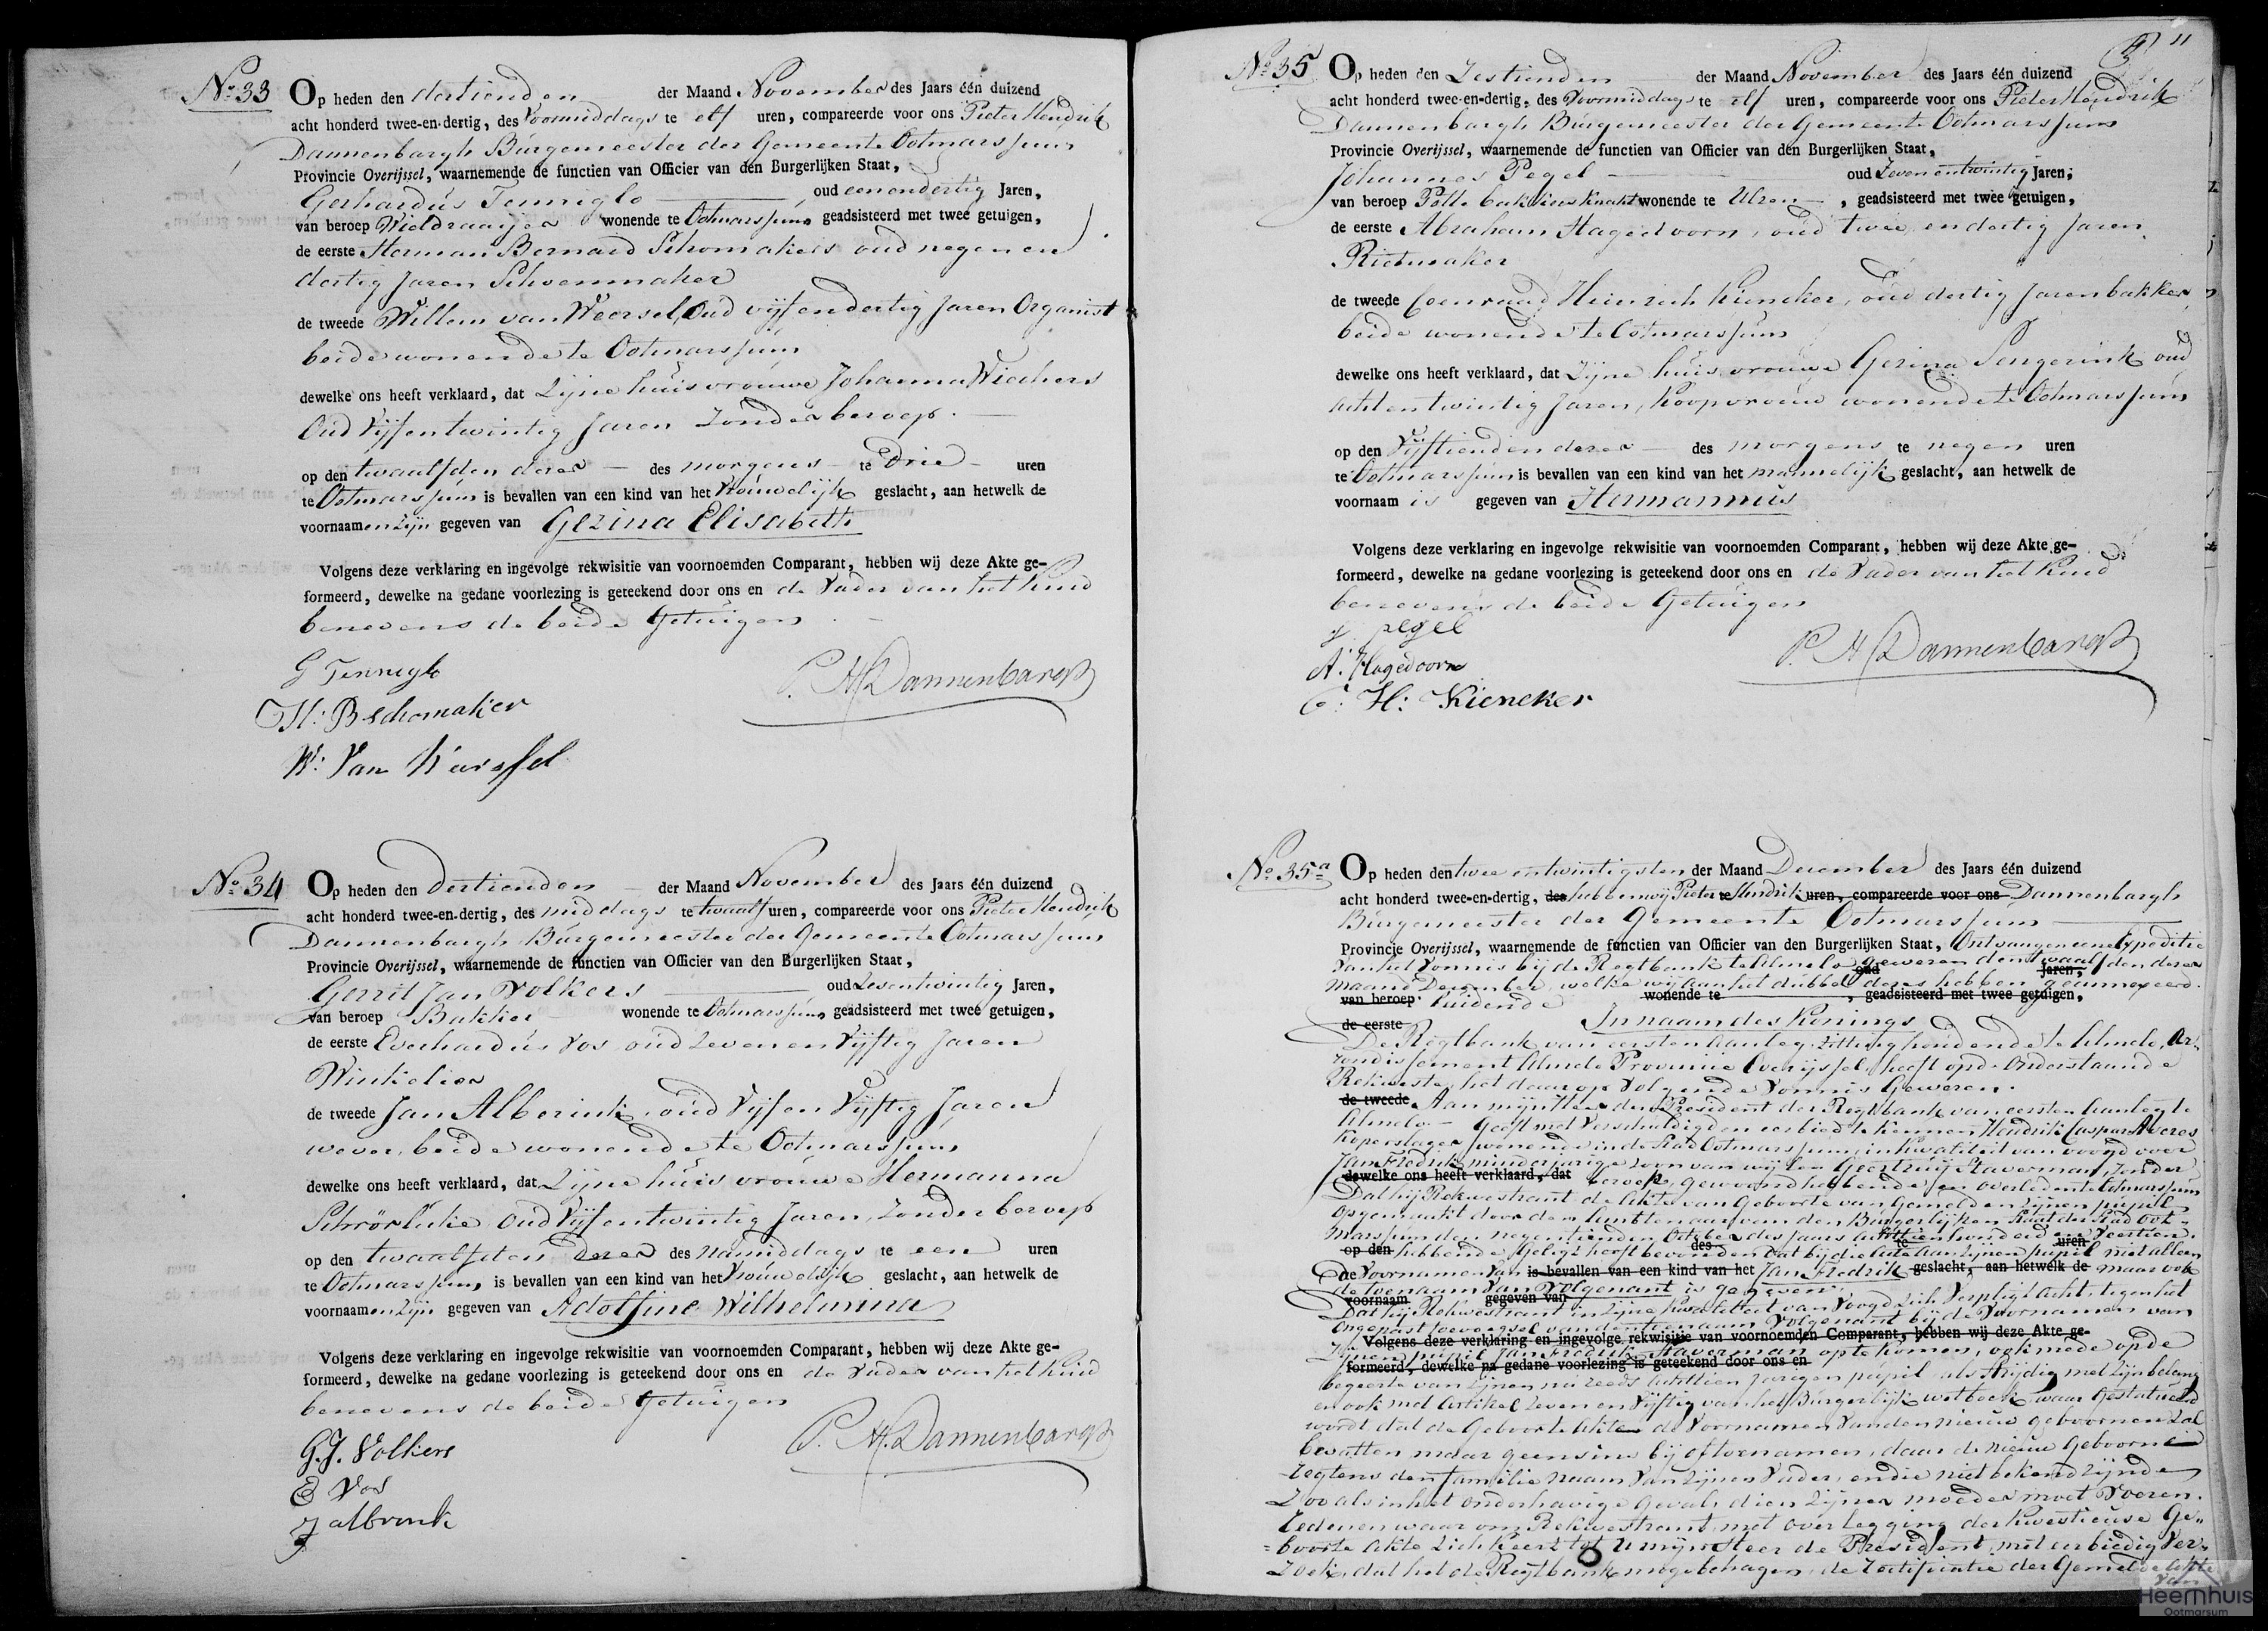 No 33 Op heden den dertienden der Maand November des Jaars één duizend
acht honderd twee-en-dertig, des Voormiddags te elf uren, compareerde voor ons Pieter Hendrik
Dannenbargh Burgemeester der Gemeente Ootmarssum
Provincie Overijssel, waarnemende de functien van Officier van den Burgerlijken Staat,
Gerhardus Tenniglo oud eenendertig Jaren,
van beroep Wieldraaijer wonende te Ootmarssum geadsisteerd met twee getuigen,
de eerste Herman Bernard Schomakers oud negenen
dertig Jaren Schoenmaker
de tweede Willem van Weersel, Oud vijfendertig Jaren Organist
beide wonende te Ootmarssum
dewelke ons heeft verklaard, dat Zijne huisvrouwe Johanna Wichers
Oud Vijfentwintig Jaren Zonder beroep.
op den twaalfden dezer des morgens te Drie uren
te Ootmarssum is bevallen van een kind van het Vrouwelijk geslacht, aan hetwelk de
voornaamen zijn gegeven van Gezina Elisabeth
Volgens deze verklaring en ingevolge rekwisitie van voornoemden Comparant, hebben wij deze Akte ge-
formeerd, dewelke na gedane voorlezing is geteekend door ons en de Vader van het Kind
benevens de beide Getuigen
G Tenniglo
P. H. Dannenbargh
H: B Schomaker
W: Van Weersel
No 34 Op heden den Dertienden der Maand November des Jaars één duizend
acht honderd twee-en-dertig, des middags te twaalf uren, compareerde voor ons Pieter Hendrik
Dannenbargh Burgemeester der Gemeente Ootmarssum
Provincie Overijssel, waarnemende de functien van Officier van den Burgerlijken Staat,
Gerrit Jan Volkers oud Zesentwintig Jaren,
van beroep Bakker wonende te Ootmarssum geadsisteerd met twee getuigen,
de eerste Everhardus Vos oud Zevenen Vijftig Jaren
Winkelier
de tweede Jan Alberink, oud Vijfen Vijftig Jaren
wever, beide wonende te Ootmarssum
dewelke ons heeft verklaard, dat Zijne huisvrouwe Hermanna
oud Vijfentwintig Jaren, Zonder beroep
op den twaalfden dezer des namiddags te een uren
te Ootmarssum is bevallen van een kind van het Vrouwelijk geslacht, aan hetwelk de
voornaamen zijn gegeven van Adolfine Wilhelmina
Volgens deze verklaring en ingevolge rekwisitie van voornoemden Comparant, hebben wij deze Akte ge-
formeerd, dewelke na gedane voorlezing is geteekend door ons en de Vader van het Kind
benevens de beide Getuigen
G. J. Volkers
P. H. Dannenbargh
E Vos
J alberink
11
No 35 Op heden den Zestienden der Maand November des Jaars één duizend
acht honderd twee-en-dertig, des Voormiddags te elf uren, compareerde voor ons Pieter Hendrik
Dannenbargh Burgemeester der Gemeente Ootmarssum
Provincie Overijssel, waarnemende de functien van Officier van den Burgerlijken Staat,
Johannes Pegel oud Zevenentwintig Jaren,
van beroep Potte bakkersknecht wonende te Ulzen, geadsisteerd met twee getuigen,
de eerste Abraham Hagedoorn, oud twee endertig Jaren
Rietmaker
de tweede Coenraad Heinrich Kieneker, oud dertig Jaren bakker
beide wonende te Ootmarssum
dewelke ons heeft verklaard, dat Zijne huisvrouwe Gezina Sengerink oud
achtentwintig Jaren, koopvrouw wonende te Ootmarssum
op den Vijftienden dezer des morgens te negen uren
te Ootmarssum is bevallen van een kind van het mannelijk geslacht, aan hetwelk de
voornaam is gegeven van Hermannus
Volgens deze verklaring en ingevolge rekwisitie van voornoemden Comparant, hebben wij deze Akte ge-
formeerd, dewelke na gedane voorlezing is geteekend door ons en de Vader van het Kind
benevens de beide Getuigen
J. pegel
P. H. Dannenbargh
A. Hagedoorn
C: H: Kieneker
No 35a Op heden den twee entwintigsten der Maand December des Jaars één duizend
acht honderd twee-en-dertig, des hebben wij Pieter te Hendrik uren, compareerde voor ons Dannenbargh
Burgemeester der Gemeente Ootmarssum
Provincie Overijssel, waarnemende de functien van Officier van den Burgerlijken Staat, Ontvangen eene Expeditie
van het Vonnis bij de Regtbank te Almelo gewezen den twaalfden dezer
oud Jaren,
maand December, welke wij aan het dubbel dezes hebben geannexeerd.
van beroep luidende wonende te , geadsisteerd met twee getuigen,
de eerste In naam des Konings
De Regtbank van eersten Aanleg Zitting houdende te Almelo, Ar-
rondissement Almelo Provincie Overijssel, heeft op de Onderstaande
Rekweste, het daar op Volgende Vonnis Gewezen.
de tweede Aan mijnHeer den President der Regtbank van eersten Aanleg te
Almelo. Geeft met Verschuldigden eerbied te kennen Hendrik Caspar Alberes
Koperslager wonende in de Stad Ootmarssum, in kwaliteit van voogd over
Jan Fredrik minderjarige zoon van wijlen Geertruij Staverman, Zonder
dewelke ons heeft verklaard, dat beroep, gewoond hebbende en overleden te Ootmarssum
Dat hij Rekwestrant de Akte van Geboorte van Gemelden zijnen pupil
Opgemaakt door den Ambtenaar van den Burgerlijken Staat der Stad Oot-
marssum den negentienden October des jaars achttienhonderd Veertien
op den des te uren
hebbende geligt heeft bevonden dat bij die Acte aan zijnen pupil niet alleen
de Voornamen van is bevallen van een kind van het Jan Fredrik geslacht, aan hetwelk de maar ook
de toenaam Van Volgenant is gegeven.
voornaam gegeven van
Dat hij Rekwestrant in Zijne kwaliteit van Voogd Zich Verpligt acht, tegen het
ongepast toevoegsel van den toenaam Volgenant bij de Voornamen van
Volgens deze verklaring en ingevolge rekwisitie van voornoemden Comparant, hebben wij deze Akte ge-
Zijnen pupil Jan Fredrik Staverman op te komen, ook mede op de
formeerd, dewelke na gedane voorlezing is geteekend door ons en
begeerte van Zijnen nu reeds achttien Jarigen pupil, als Strijdig met Zijn belang
en ook met Artikel Zeven en Vijftig van het Burgerlijk wetboek, waar Gestatueerd
wordt dat de Geboorte Akte de Voornamen Van den nieuw geboornen Zal
bevatten maar geensins bij of toenamen, daar de nieuw Geboorne
regtens den familie naam Van Zijnen Vader, en die niet bekend Zijnde
Zoo als in het onderhavige geval, dien Zijner moeder moet Voeren.
Redenen waarom Rekwestrant met overlegging der kwestieuse Ge-
boorte Akte Zich keert tot U mijnHeer de President, met eerbiedig Ver-
Zoek, dat het de Regtbank moge behagen, de Rectificatie der Gemelde Akte
van
Heemhuis
Ootmarsum